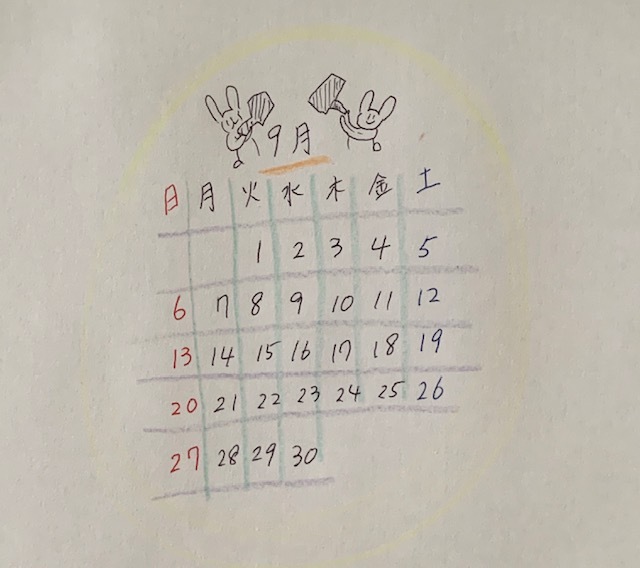 9月
日 月 火 水 木 金 土
1 2 3 4 5
6 7 8 9 10 11 12
13 14 15 16 17 18 19
20 21 22 23 24 25 26
27 28 29 30